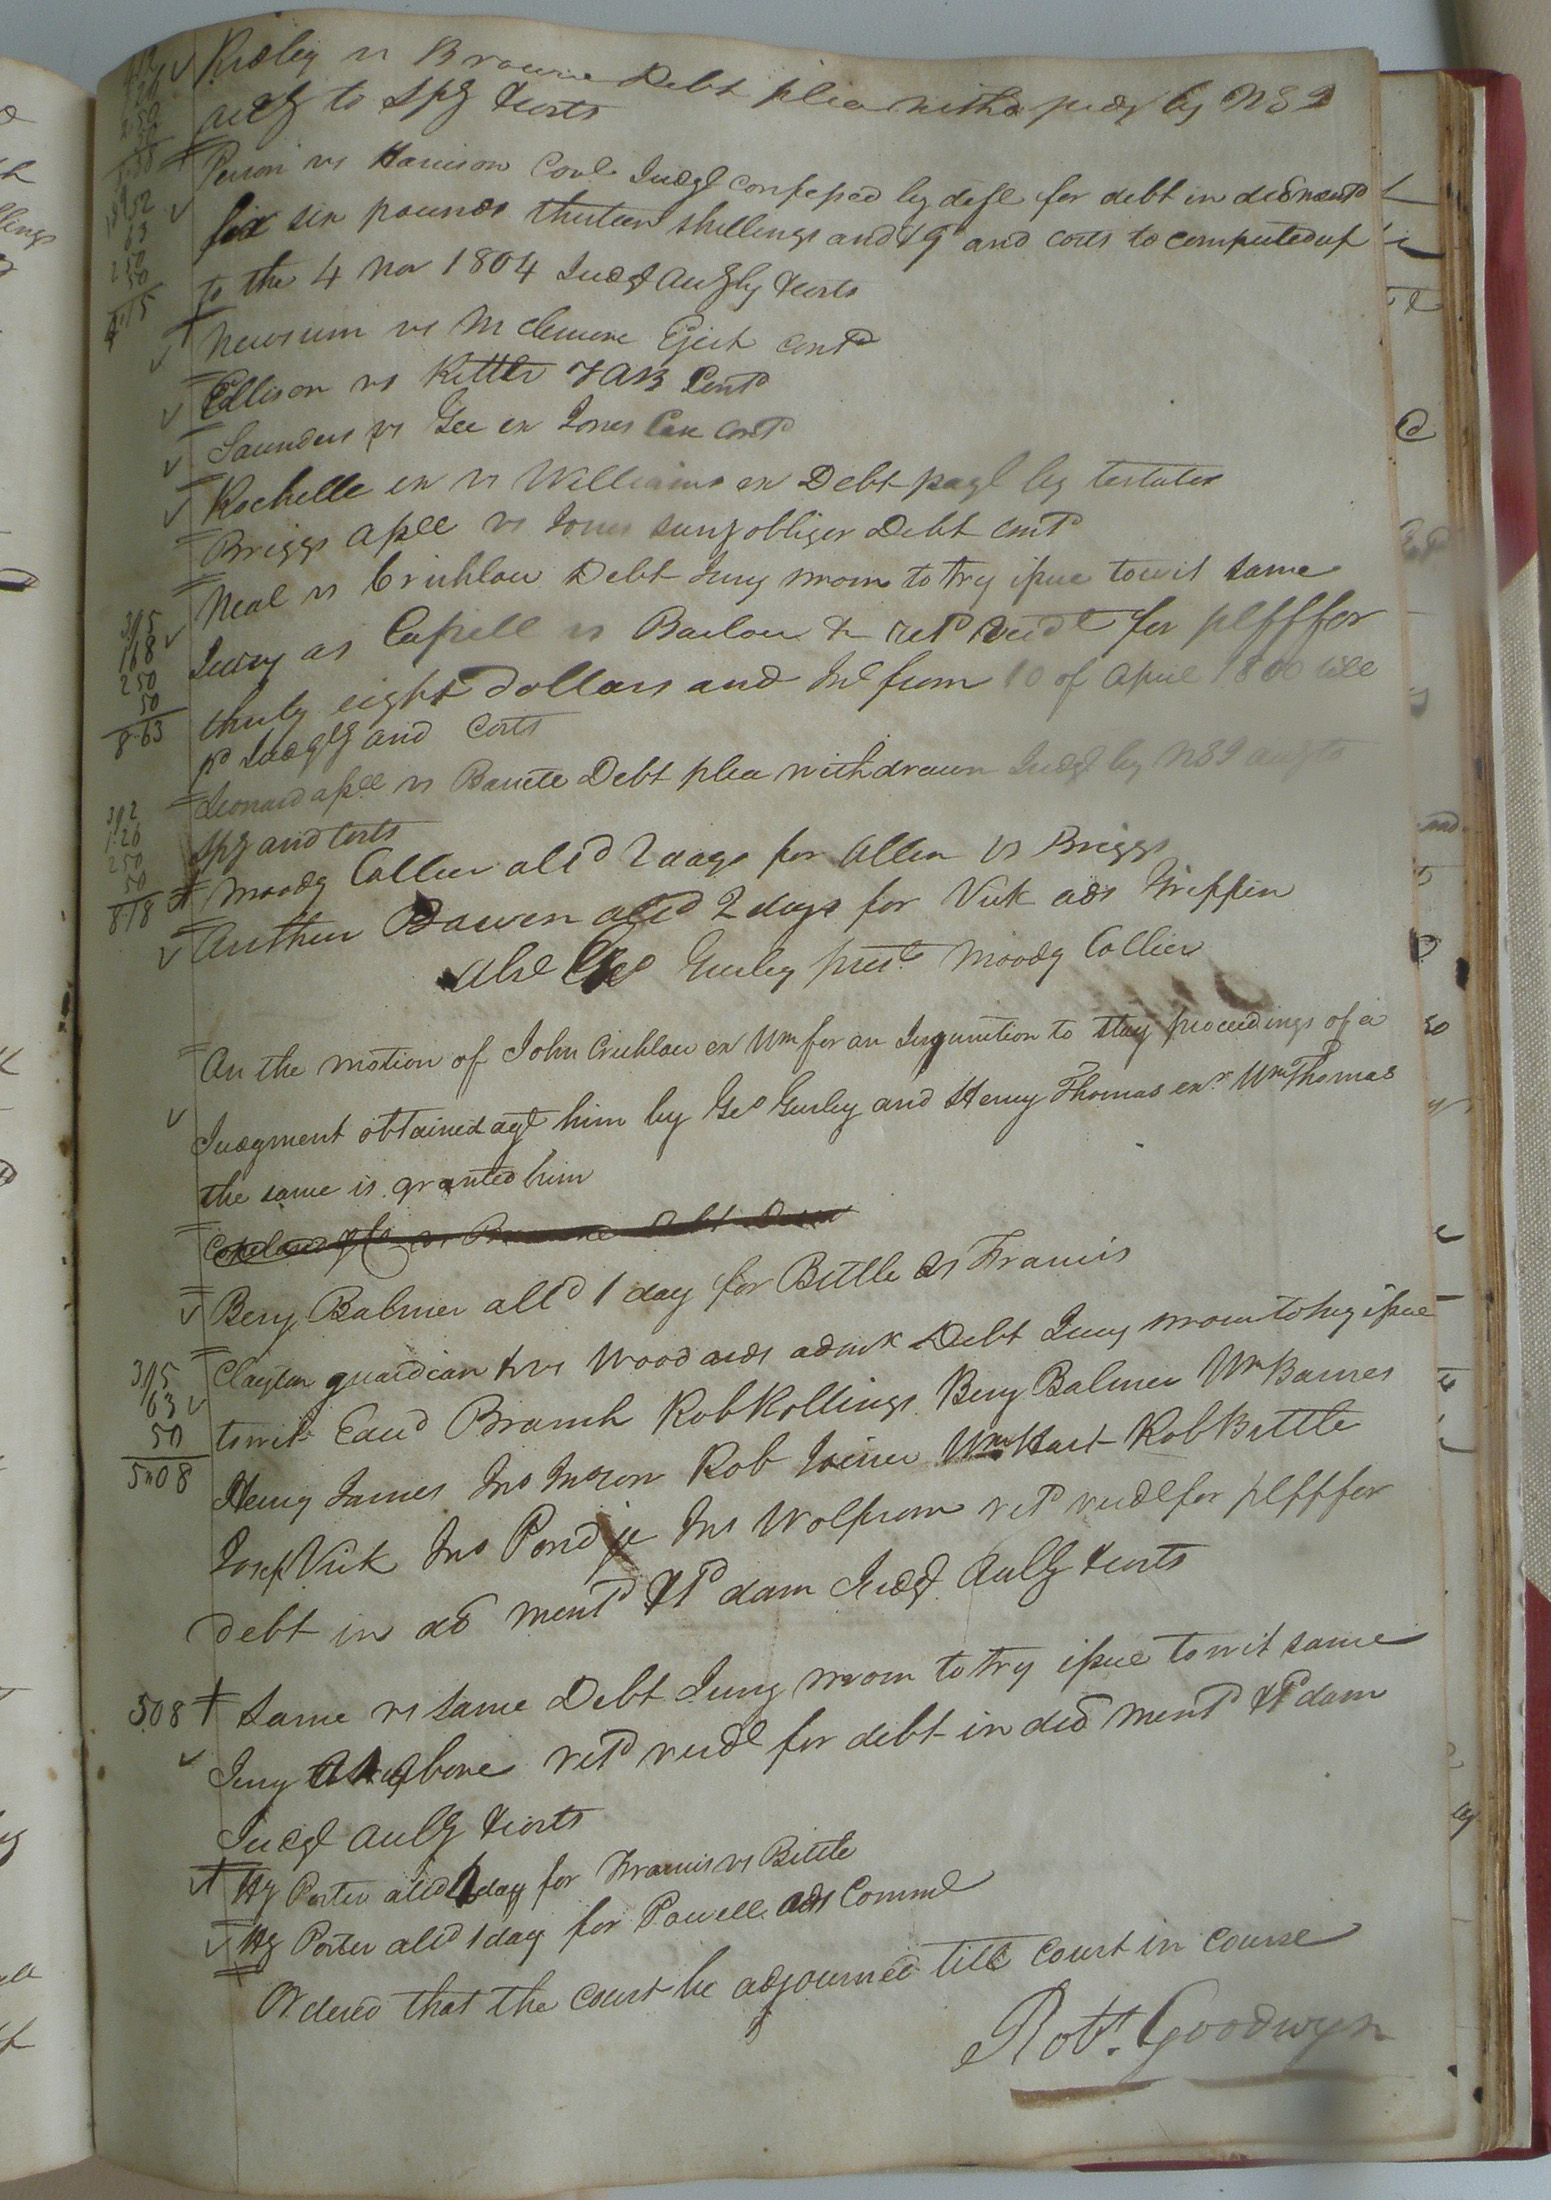 Ridley vs Browne Debt plea withd Judgt by NSI
accg to Spy &costs
Person vs Harrison Covt Judgt confessed by deft for debt in declr mentd
six pounds thirteen shillings and and costs to computed up
to the 4 Nov 1804 Judgt accgly &costs
Newsum vs McLemore Eject contd
Ellison vs Kittle TAB Contd
Saunders vs Gee ex Jones Case contd
Rochelle ex vs Williams ex Debt payt by testator
Briggs assee vs Jones survg obligor Debt contd
Neal vs Crichlow Debt Jury sworn to try issue towit same
Jury as Capell vs Barlow & retd verdt for pltff for
thirty eight dollars and Int from 10 of April 1800 till
pd Judgt and Costs
Leonard assee vs Barrett Debt plea withdrawn Judgt by NSI
Spy and Costs
Moody Collier alld 2 days for Allen vs Briggs
Arthur Bowen alld 2 days for Vick ads Griffin
Abst Geo Gurley prest Moody Collier
On the motion of John Crichlow ex Wm for an Injunction to stay proceedings of a
Judgment obtained agt him by Geo Gurley and Henry Thomas exr Wm Thomas
the same is granted him
Copeland vs Browne Debt
Benj Balmer alld 1 day for Bittle vs Francis
Clayton guardian & vs Wood ads admx Debt Jury sworn to try issue
towit Edwd Branch Rob Rollings Benj Balmer Wm Barnes
Henry James Jno Rob Joiner Wm Hart Rob Bittle
Josep Vick Jno Pond jr Jno Wolfrom retd verdt for pltff for
debt in de mentd &1d dam Judgt accgly &costs
same vs same Debt Jury sworn to try issue towit same
Jury as above retd verdt for debt in decl mentd &1d dam
Judgt accgly &costs
Hy Porter alld 1 day for Francis vs Bittle
Hy Porter alld 1 day for Powell ads Commt
Ordered that the court be adjourned till court in course
Robt. Goodwyn
315
168
250
50
8.63
392
126
250
50
818
315
63
50
508
508